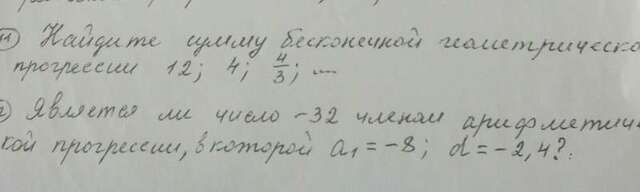 11) Найдите сумму бесконечной геометрическо
прогрессии 12; 4; 4/3; ...
2) Является ли число -32 членом арифметич
кой прогрессии, в которой a₁ = -8; d = -2,4?.